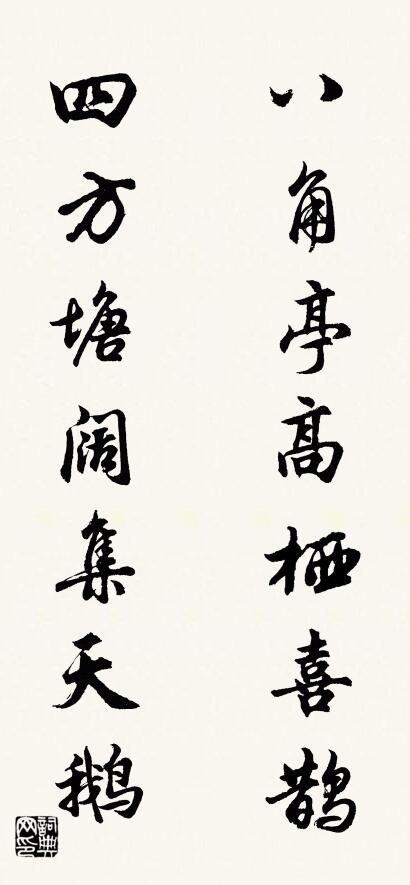 八角亭高栖喜鹊
四方塘阔集天鹅
詞典网印